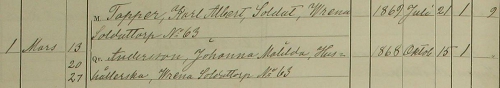 M. Topper, Karl Albert, Soldat, Wrena 1869 Juli 21 1 2
Soldattorp No 63
1 Mars 13 Q. Andersson, Johanna Matilda, Hus- 1868 Oktob. 15 1 "
20 hållerska, Wrena Soldattorp No 63
27